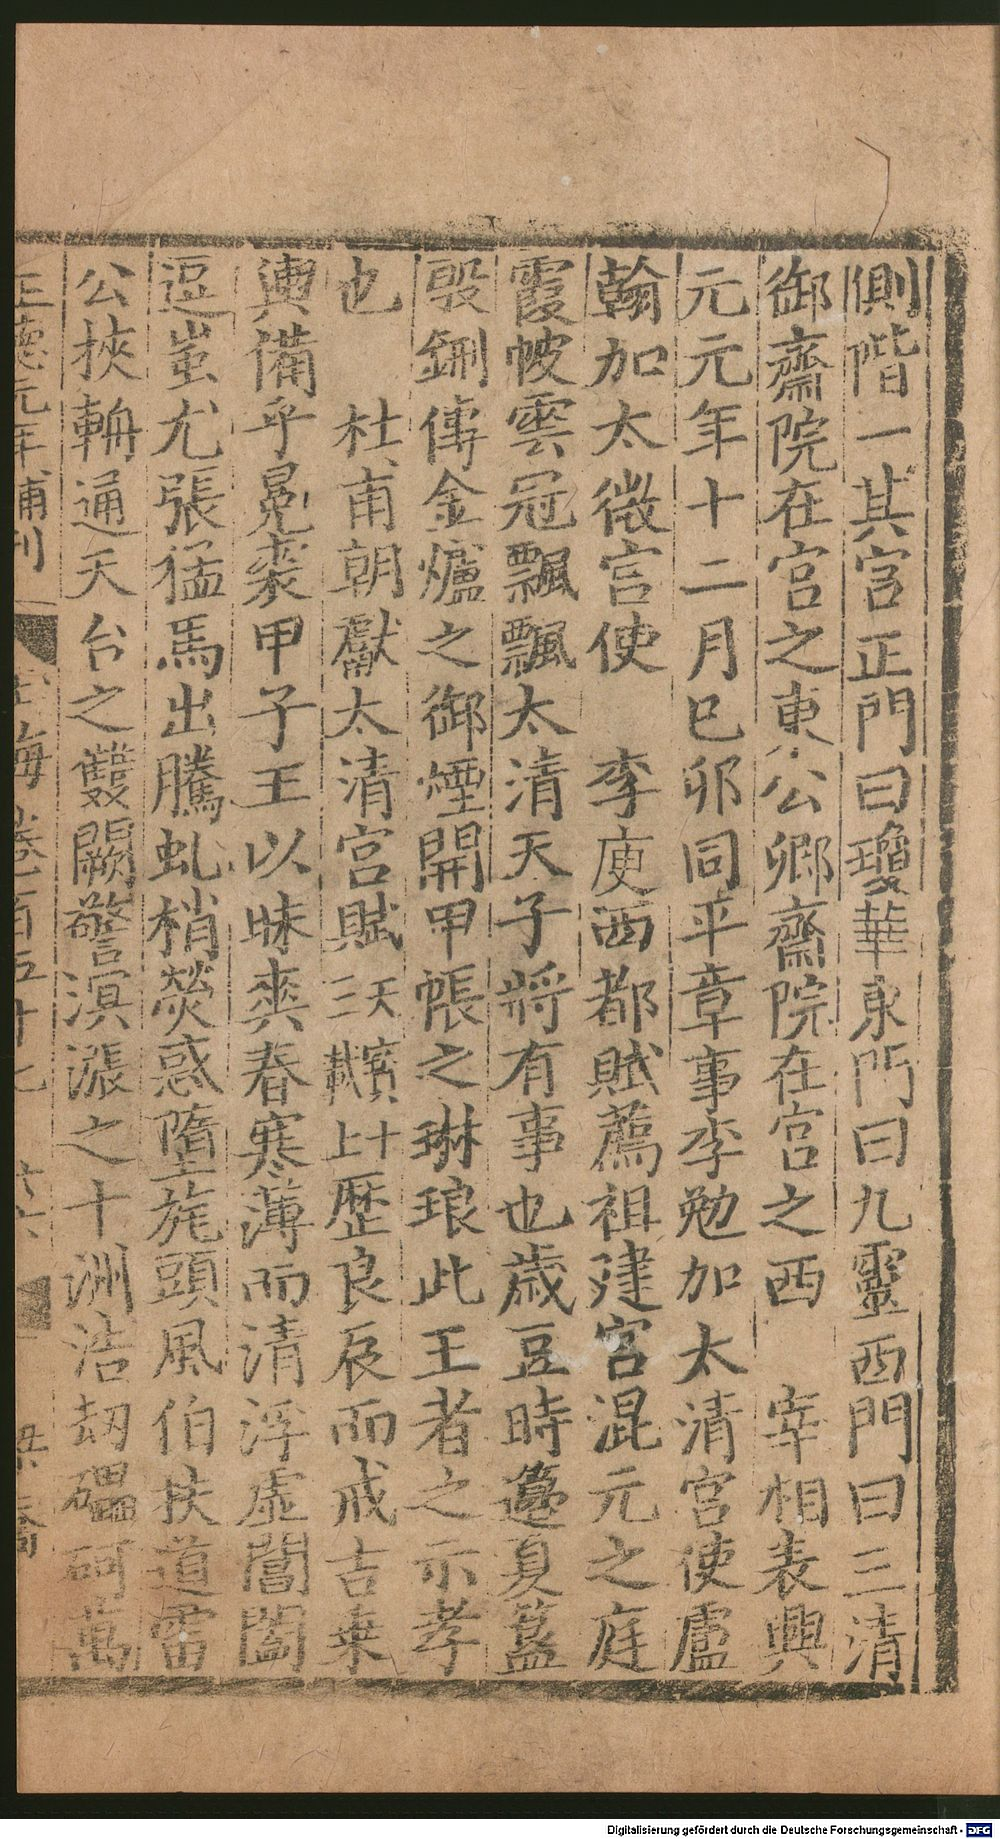 側階一其宮正門曰瓊華東門曰九靈西門曰三清
御齋院在宮之東公卿齋院在宮之西 宰相表興
元元年十二月巳卯同平章事李勉加太清宮使盧
翰加太微宮使 李庾西都賦薦祖建宮混元之庭
霞帔雲冠飄飄太清天子將有事也歲豆時籩夏簋
殷鉶傳金爐之御煙開甲帳之琳琅此王者之示孝
也 杜甫朝獻太清宮賦天寶十三載上歷良辰而戒吉乗
輿備乎冕裘甲子王以昧爽春寒薄而清浮虛閶闔
逗蚩尤張猛馬出騰虬梢熒惑墮旄頭風伯扶道雷
公挾輈通天台之雙闕警溟漲之十洲浩刼礧砢萬
正德元年補刊 玉海卷一百五十七
Digitalisierung gefördert durch die Deutsche Forschungsgemeinschaft - DFG